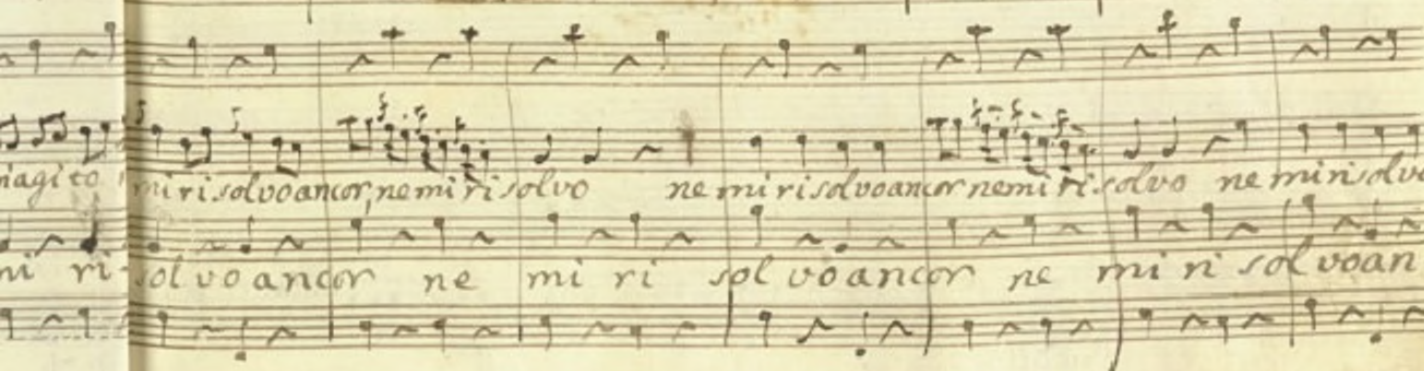 miagito mi risolvo ancor, ne mi risolvo ne mi risolvo ancor ne mi risolvo ne mi risolvo
mi ri solvo ancor ne mi ri solvo ancor ne mi ri solvo an